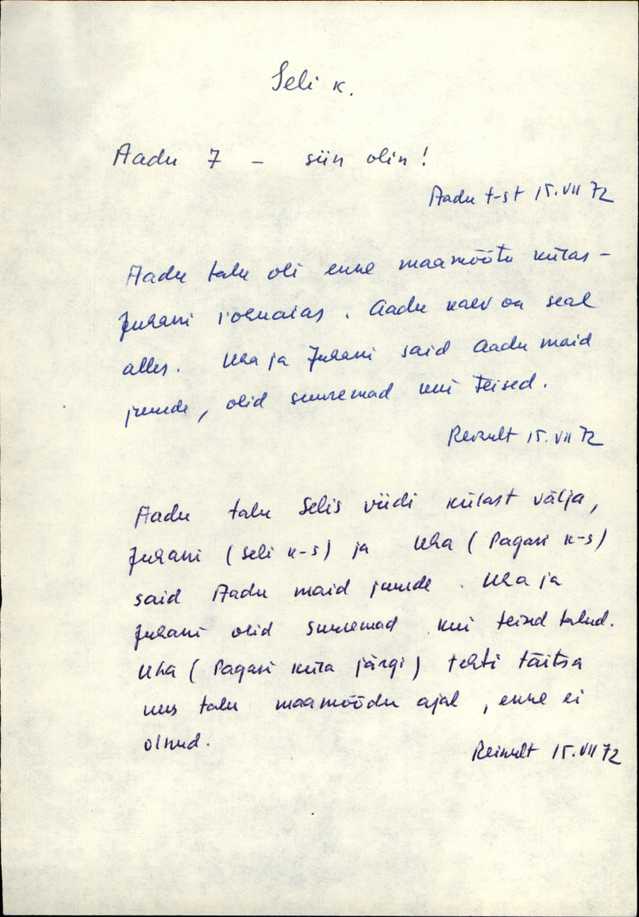 Seli k.
Aadu 7 – siin olin!
Aadu t-st 15.VII 72
Aadu talu oli enne maamõõtu külas –
Juhani jõenaias. Aadu kaev on seal
alles. Uha ja Juhani said Aadu maid
juurde, olid suuremad kui teised.
15.VII 72
Aadu talu Selis viidi külast välja,
Juhani (Seli k-s) ja Uha (Pagari k-s)
said Aadu maid juurde. Uha ja
Juhani olid suuremad kui teised talud.
Uha (Pagari küla järgi) tehti täitsa
uus talu maamõõdu ajal, enne ei
olnud.
15.VII 72